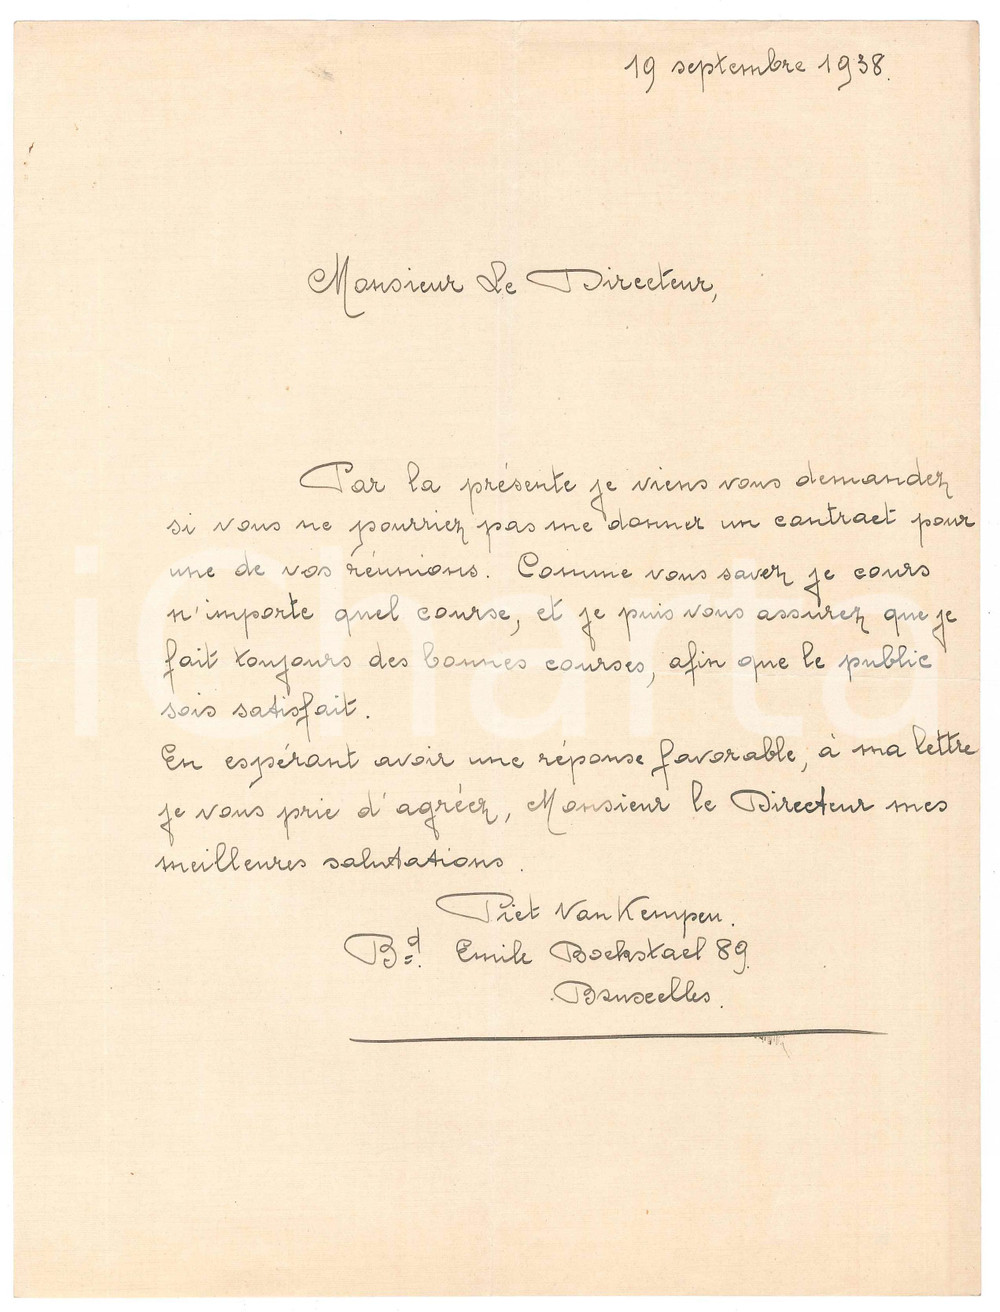 19 septembre 1938.
Monsieur Le Directeur,
Par la présente je viens vous demandez
si vous ne pourriez pas me donner un contract pour
une de vos réunions. Comme vous savez je cours
n'importe quel course, et je puis vous assurez que je
fait toujours des bonnes courses, afin que le public
sois satisfait.
En espérant avoir une réponse favorable, à ma lettre
je vous prie d'agréez, Monsieur le Directeur mes
meilleures salutations.
Piet Van Kempen.
Bd. Emile Bockstael 89.
Bruxelles.
iCharta